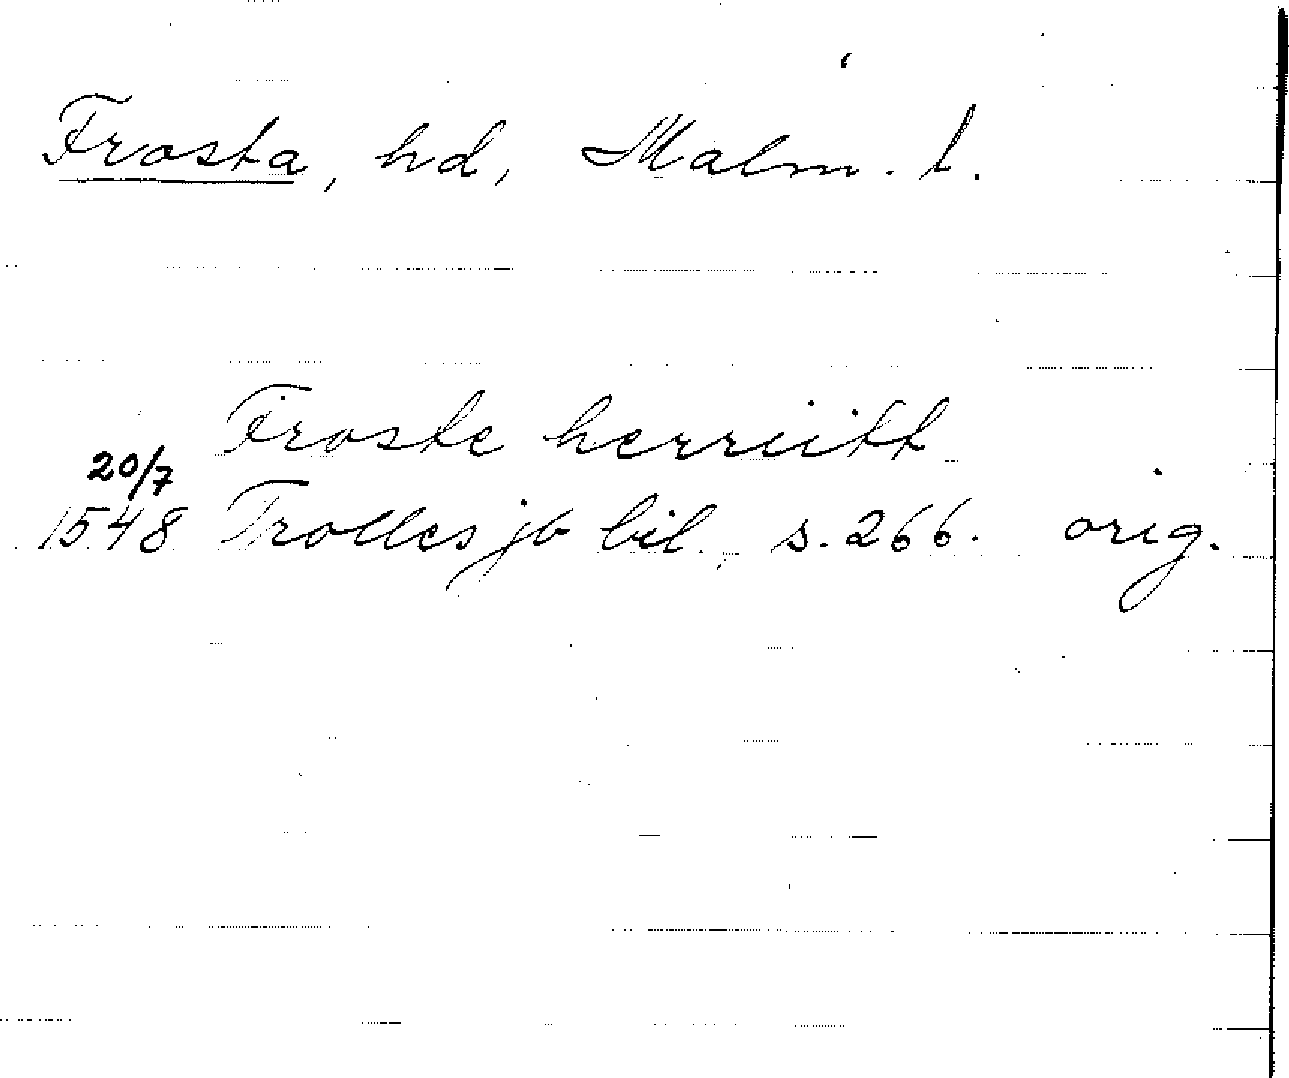 Frosta, hd, Malm. l.
Froste herriitt
20/7
1548 Trolles jb bil., s. 266. orig.